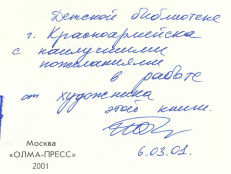 Детской библиотеке
г. Красноармейска
с наилучшими
пожеланиями
в работе
от художника
этой книги.
6.03.01.
Москва
«ОЛМА-ПРЕСС»
2001